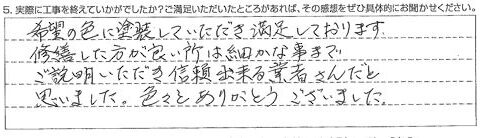 5. 実際に工事を終えていかがでしたか？ご満足いただいたところがあれば、その感想をぜひ具体的にお聞かせください。
希望の色に塗装していただき満足しております
修繕した方が良い所は細かな事まで
ご説明いただき信頼出来る業者さんだと
思いました。色々とありがとうございました。